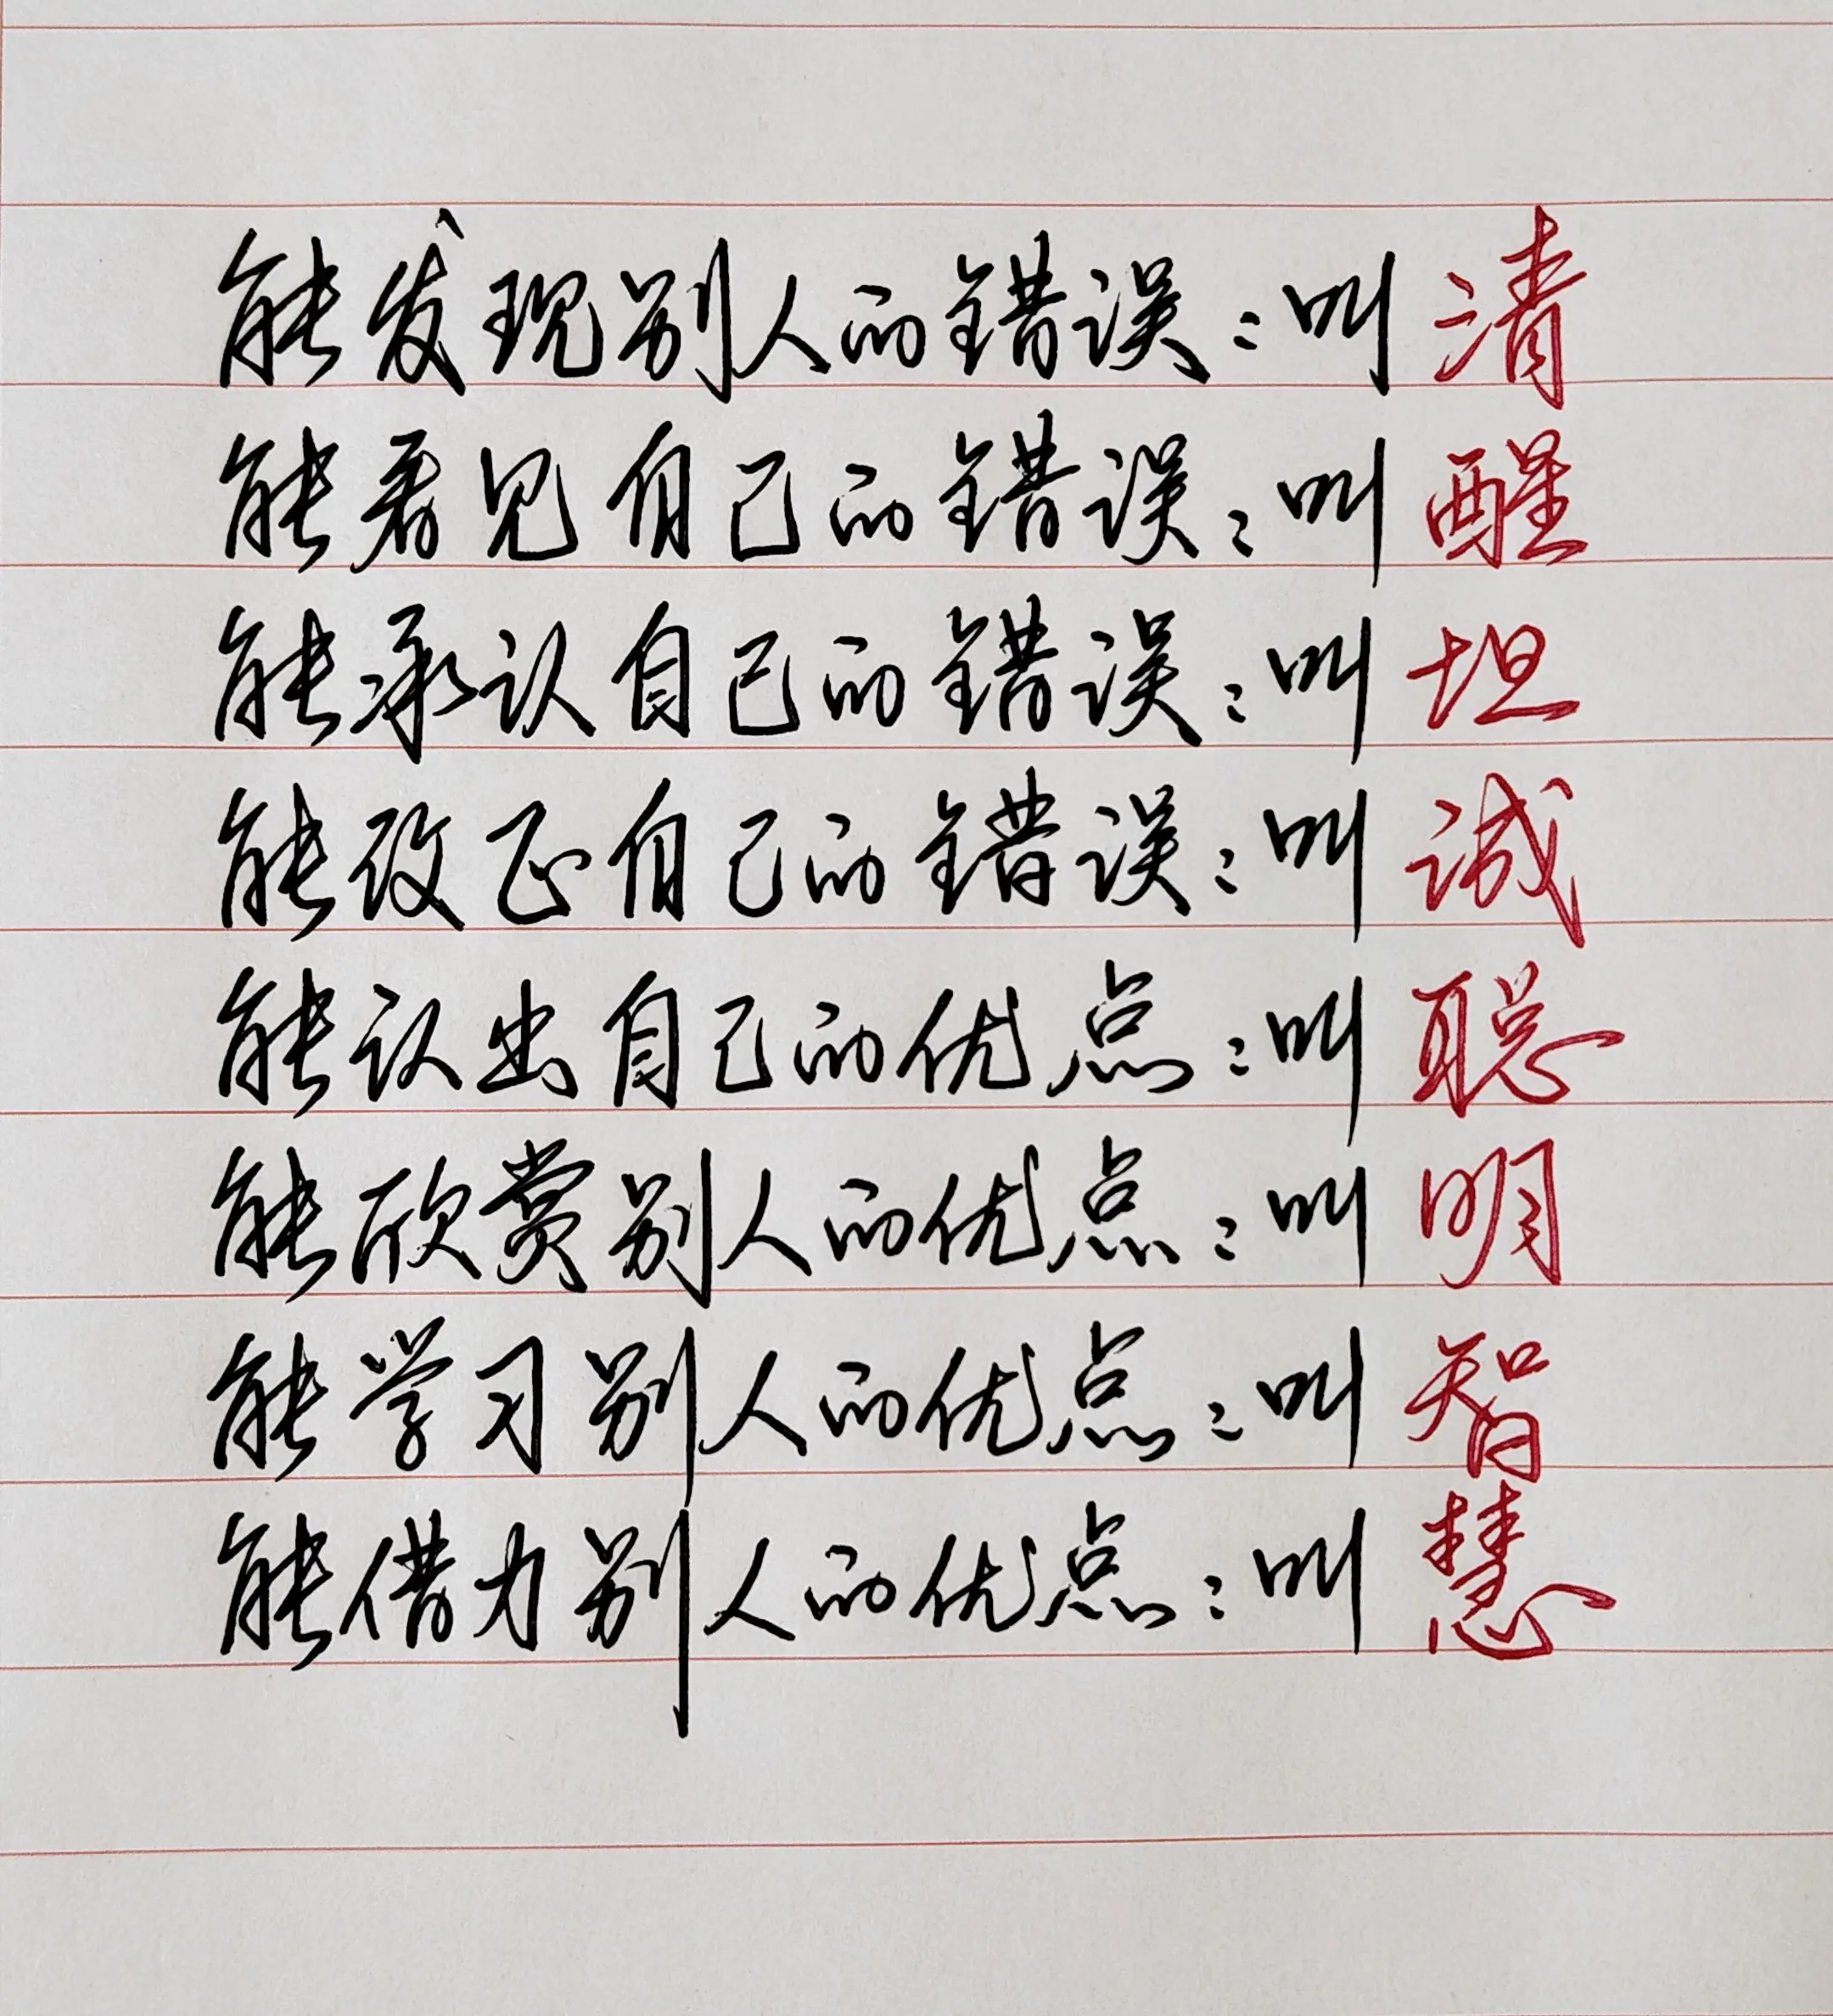 能发现别人的错误：叫清
能看见自己的错误：叫醒
能承认自己的错误：叫坦
能改正自己的错误：叫诚
能认出自己的优点：叫聪
能欣赏别人的优点：叫明
能学习别人的优点：叫智
能借力别人的优点：叫慧